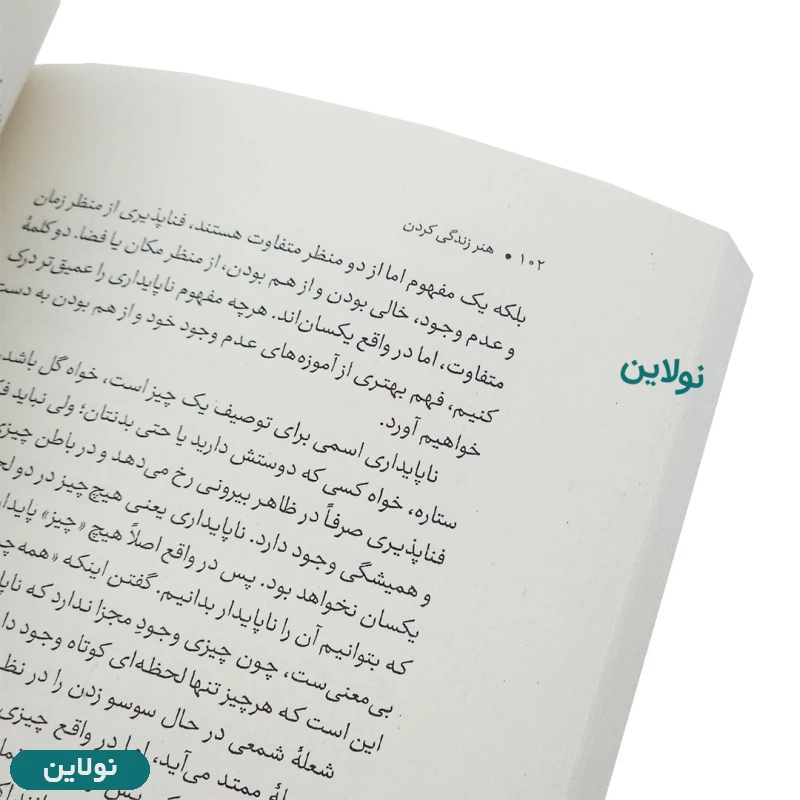 ۱۰۲ • هنر زندگی کردن
بلکه یک مفهوم اما از دو منظر متفاوت هستند، فناپذیری از منظر زمان
و عدم وجود، خالی بودن و از هم بودن، از منظر مکان یا فضا. دو کلمهٔ
متفاوت، اما در واقع یکسان‌اند. هرچه مفهوم ناپایداری را عمیق‌تر درک
کنیم، فهم بهتری از آموزه‌های عدم وجود خود و از هم بودن به دست
خواهیم آورد.
ناپایداری اسمی برای توصیف یک چیز است، خواه گل باشد،
ستاره، خواه کسی که دوستش دارید یا حتی بدنتان؛ ولی نباید
فناپذیری صرفاً در ظاهر بیرونی رخ می‌دهد و در باطن چیزی
و همیشگی وجود دارد. ناپایداری یعنی هیچ‌چیز در دو
یکسان نخواهد بود. پس در واقع اصلاً هیچ «چیز»
که بتوانیم آن را ناپایدار بدانیم. گفتن اینکه «همه
بی‌معنی‌ست، چون چیزی وجودِ مجزا ندارد که
این است که هرچیز تنها لحظه‌ای کوتاه وجود
شعلهٔ شمعی در حال سوسو زدن را در
ممتد می‌آید، اما در واقع چیزی
نولاین
نولاین